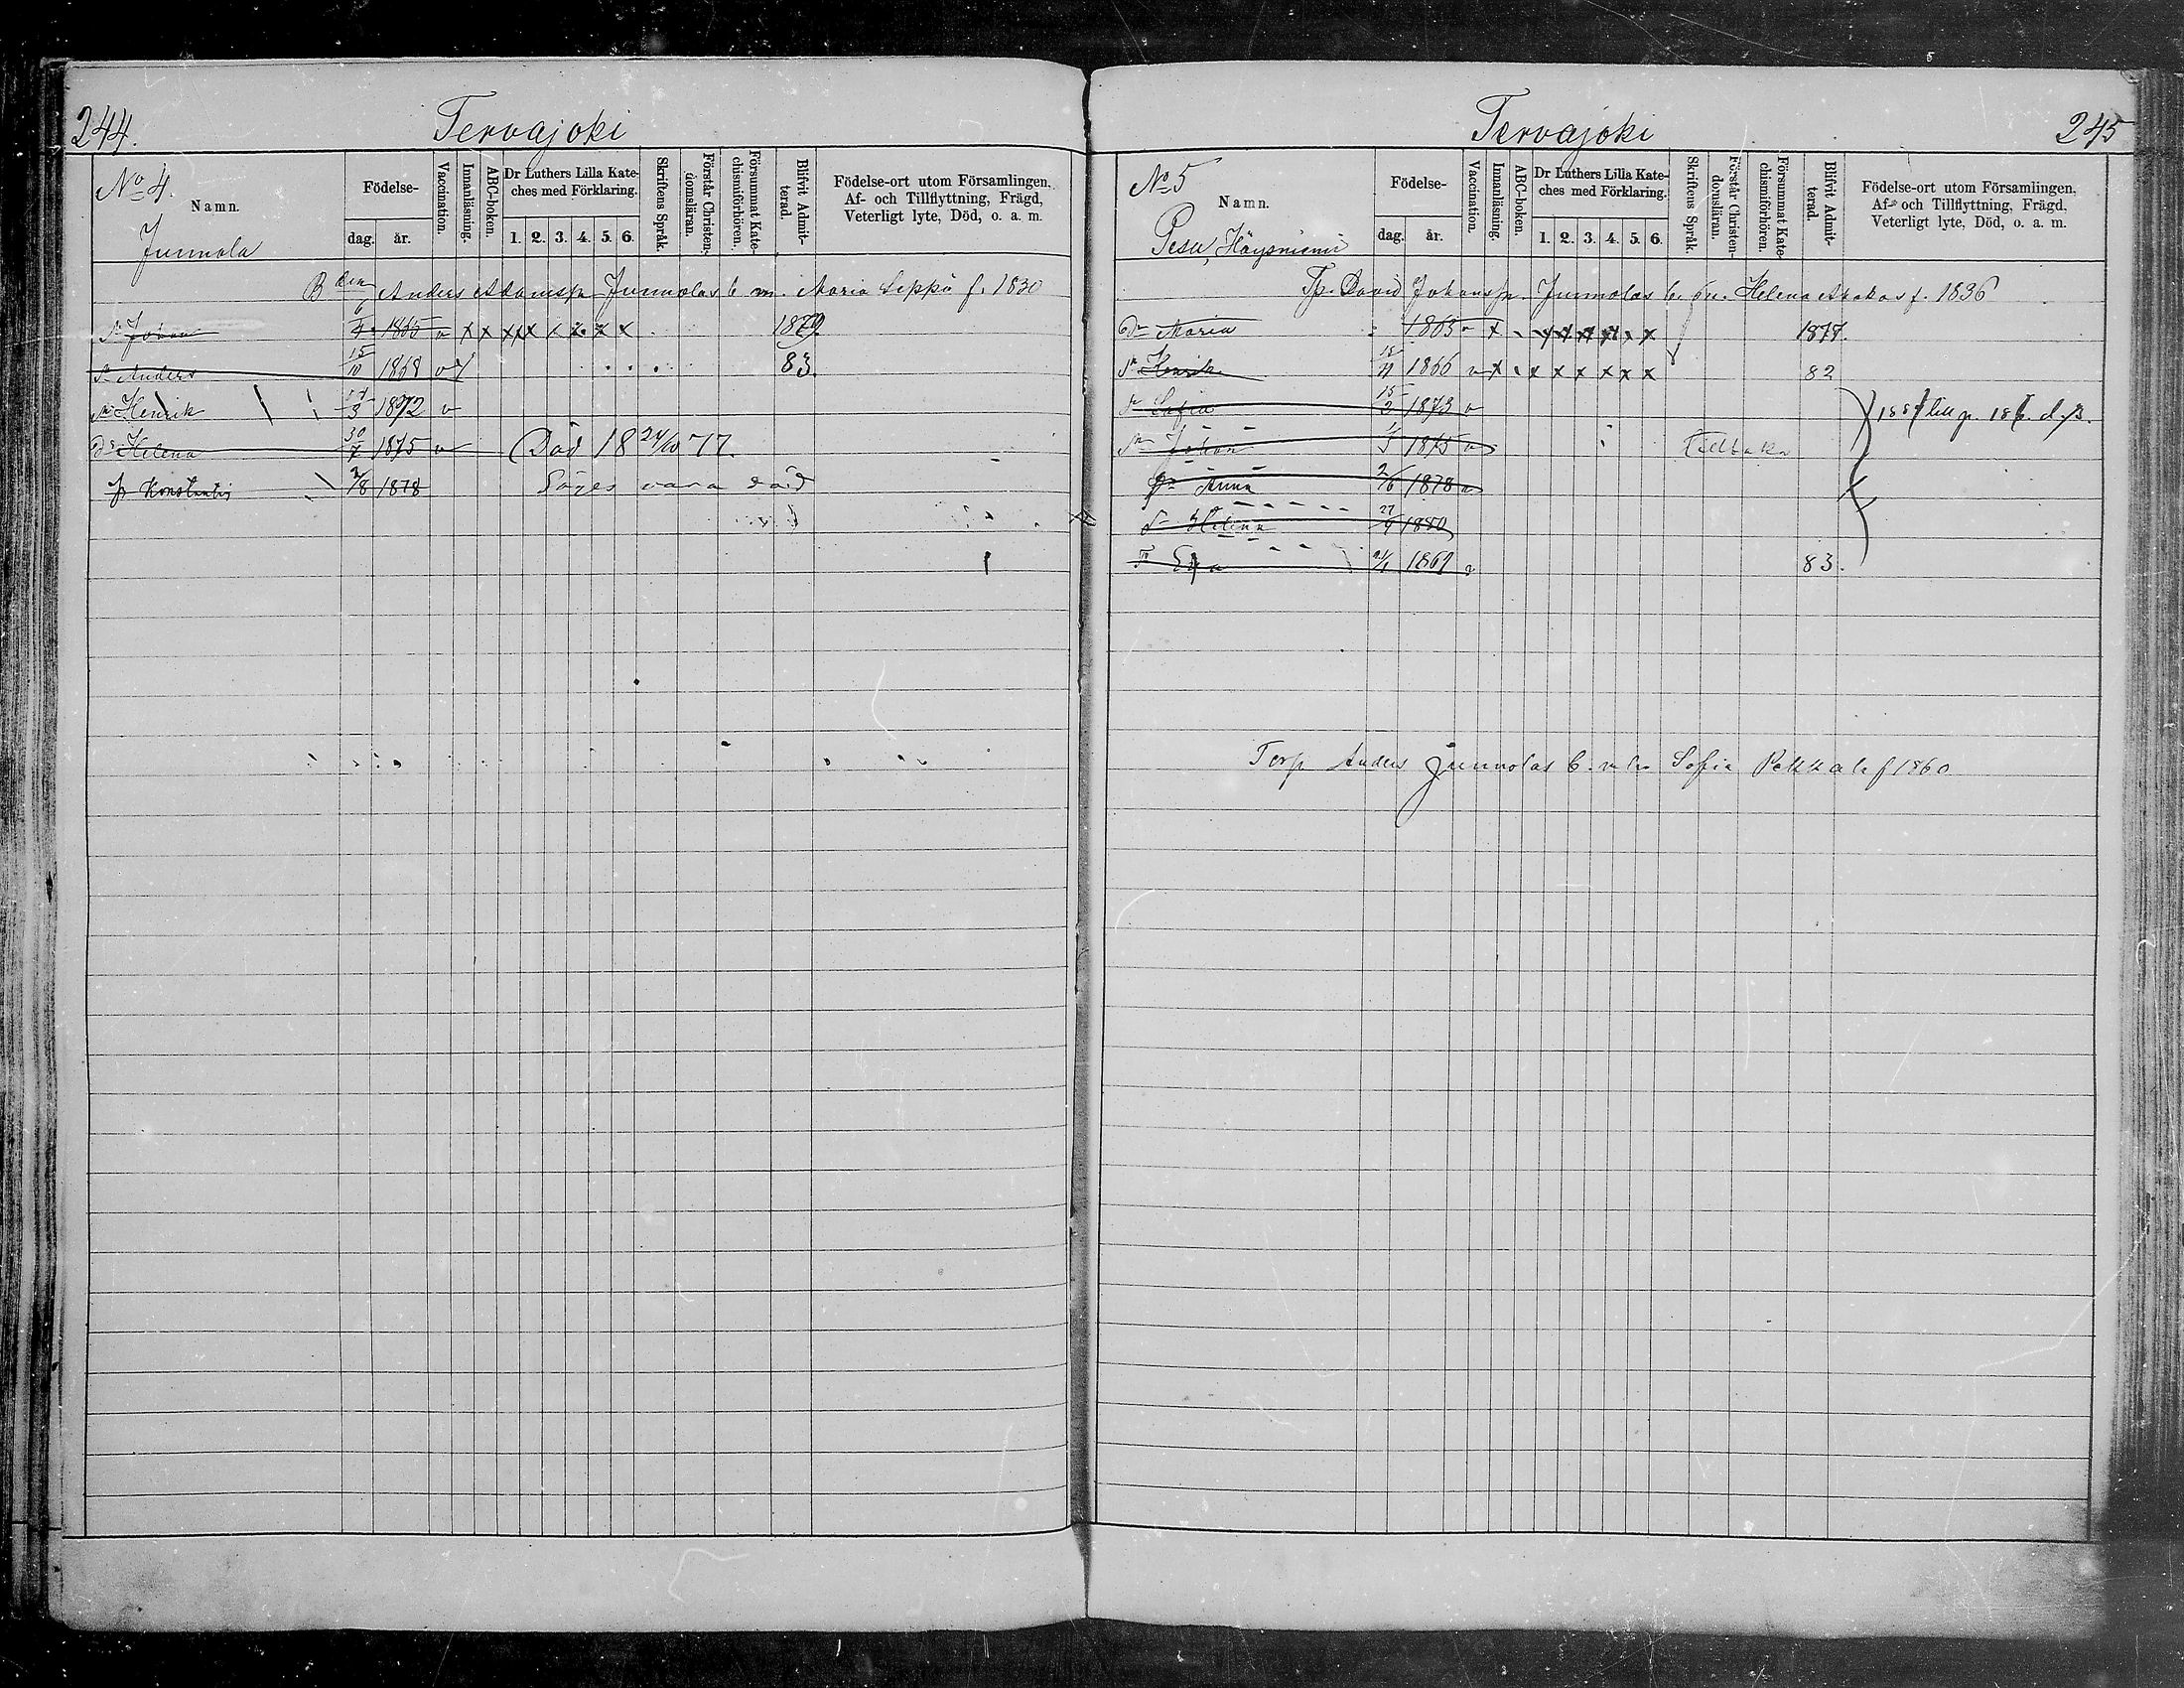 244.
Tervajoki
No 4.
Namn.
Junnola
Födelse-
dag.
år.
Vaccination.
Innanläsning.
ABC-boken.
Dr Luthers Lilla Kate-
ches med Förklaring.
1. 2. 3. 4. 5. 6.
Skriftens Språk.
Förstår Christen-
domsläran.
Försummat Kate-
chismiförhören.
Blifvit Admit-
terad.
Födelse-ort utom Församlingen,
Af- och Tillflyttning, Frägd,
Veterligt lyte, Död, o. a. m.
Anders Adamsson Junnolas b. m. Maria Seppä f. 1830
Sn Johan 6/4 1865 v x x x x x x x x 1879
Sn Anders 15/10 1868 v 83.
Sn Henrik 17/3 1872 v
Dr Helena 30/7 1875 v Död 18 24/10 77.
Konstantin 2/8 1878 Säges vara död
Tervajoki
245
No 5
Namn.
Pesu, Höysniemi
Födelse-
dag.
år.
Vaccination.
Innanläsning.
ABC-boken.
Dr Luthers Lilla Kate-
ches med Förklaring.
1. 2. 3. 4. 5. 6.
Skriftens Språk.
Förstår Christen-
domsläran.
Försummat Kate-
chismiförhören.
Blifvit Admit-
terad.
Födelse-ort utom Församlingen,
Af- och Tillflyttning, Frägd,
Veterligt lyte, Död, o. a. m.
Tp. David Johansson Junnolas b. m. Helena f. 1836
Dr Maria 1863 v x x x x x x x 1877.
Sn Henrik 18/11 1866 v x x x x x x x 82
Dr Sofia 15/2 1873 v till p.
Sn Johan 1875 v Tillbaka
Dr Anna 2/6 1878 v
Dr Helena 27/9 1880
Eva 1867 v 83.
Torp Anders Junnolas b. m. Sofia f 1860